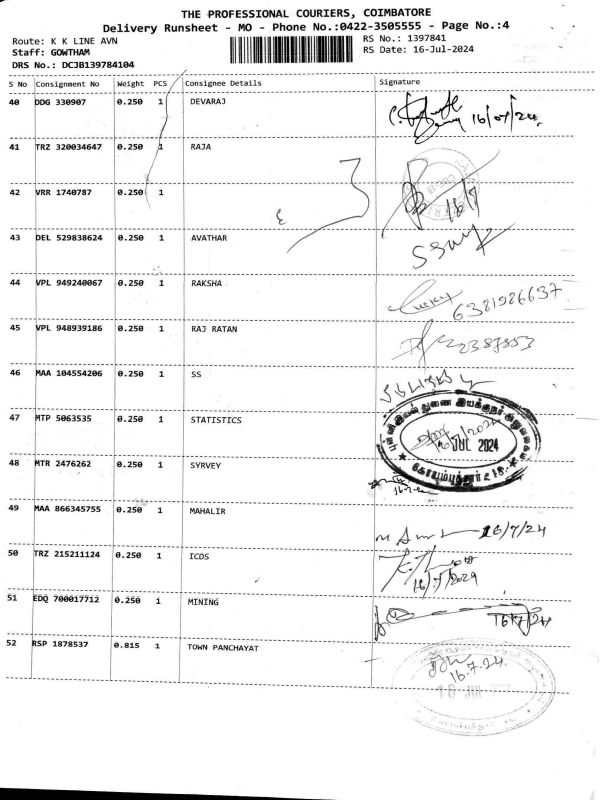 THE PROFESSIONAL COURIERS, COIMBATORE
Delivery Runsheet - MO - Phone No.:0422-3505555 - Page No.:4
Route: K K LINE AVN
RS No.: 1397841
Staff: GOWTHAM
RS Date: 16-Jul-2024
DRS No.: DCJB139784104
S No Consignment No Weight PCS Consignee Details Signature
40 DDG 330907 0.250 1 DEVARAJ 16/07/24.
41 TRZ 320034647 0.250 1 RAJA
42 VRR 1740787 0.250 1 16/7
43 DEL 529838624 0.250 1 AVATHAR
44 VPL 949240067 0.250 1 RAKSHA 6381986637
45 VPL 948939186 0.250 1 RAJ RATAN
46 MAA 104554206 0.250 1 SS
47 MTP 5063535 0.250 1 STATISTICS
JUL 2024
48 MTR 2476262 0.250 1 SYRVEY
49 MAA 866345755 0.250 1 MAHALIR 16/7/24
50 TRZ 215211124 0.250 1 ICDS
16/7/2024
51 EDQ 700017712 0.250 1 MINING 16/7/24
52 RSP 1878537 0.815 1 TOWN PANCHAYAT
16.7.24